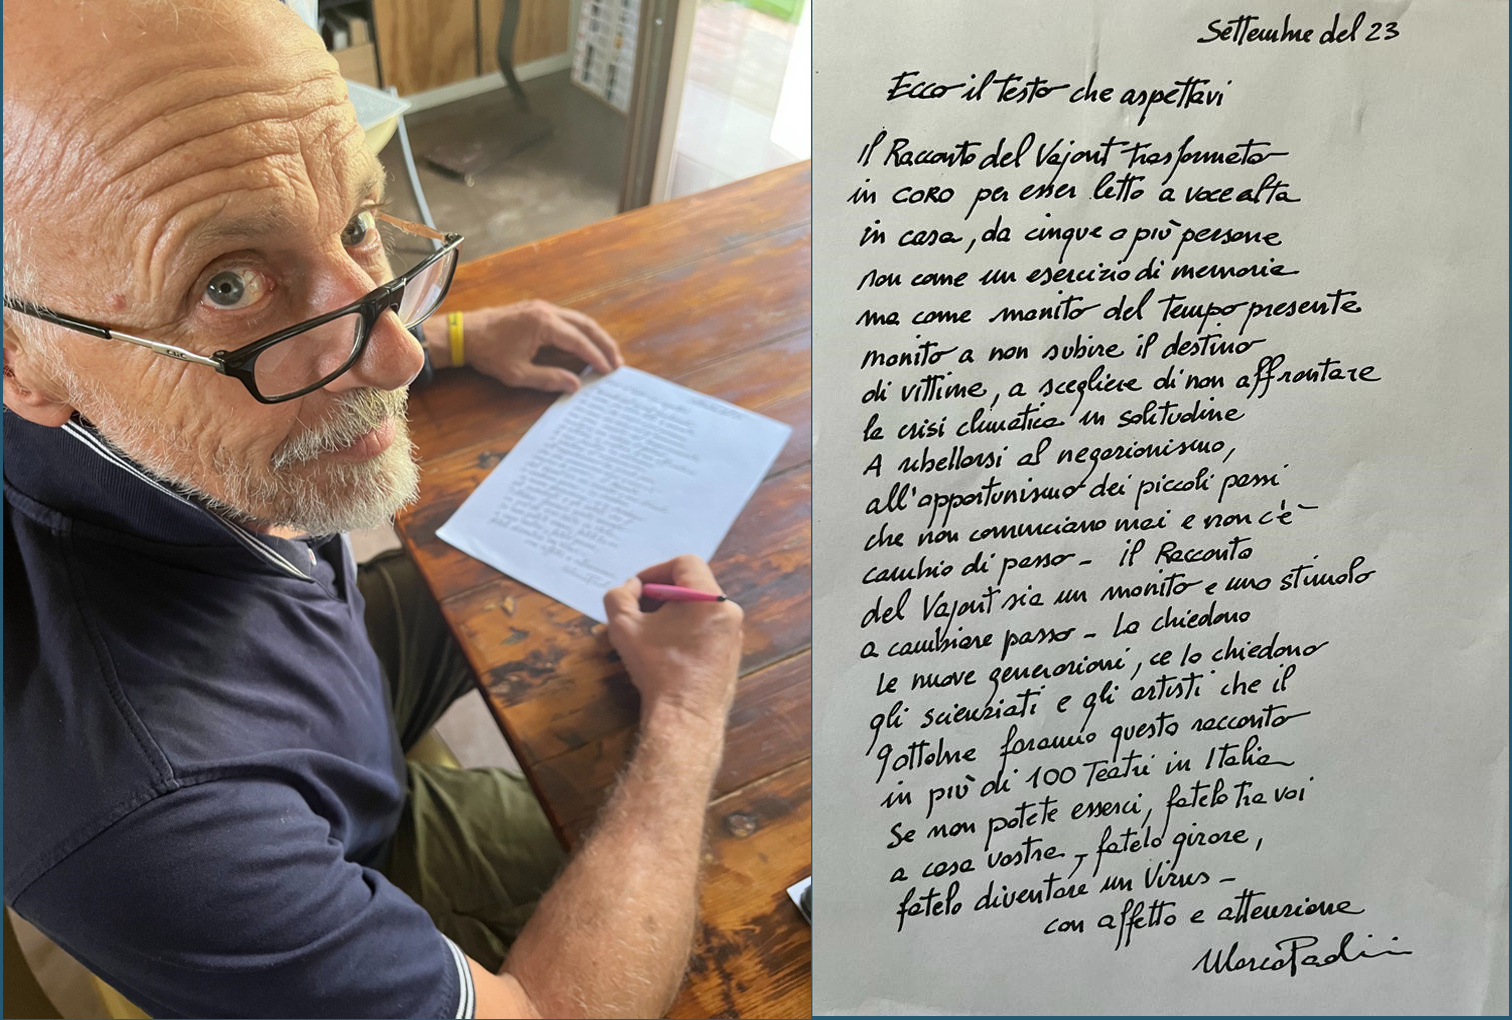 Settembre del 23
Ecco il testo che aspettavi
Il Racconto del Vajont trasformato
in CORO per esser letto a voce alta
in casa, da cinque o più persone
non come un esercizio di memoria
ma come monito del Tempo presente
monito a non subire il destino
di vittime, a scegliere di non affrontare
la crisi climatica in solitudine
A ribellarsi al negazionismo,
all'opportunismo dei piccoli passi
che non cominciano mai e non c'è
cambio di passo - il Racconto
del Vajont sia un monito e uno stimolo
a cambiare passo - Lo chiedono
le nuove generazioni, ce lo chiedono
gli scienziati e gli artisti che il
9 ottobre faranno questo racconto
in più di 100 Teatri in Italia
Se non potete esserci, fatelo tra voi
a casa vostra, fatelo girare,
fatelo diventare un Virus -
con affetto e attenzione
Marco Paolini